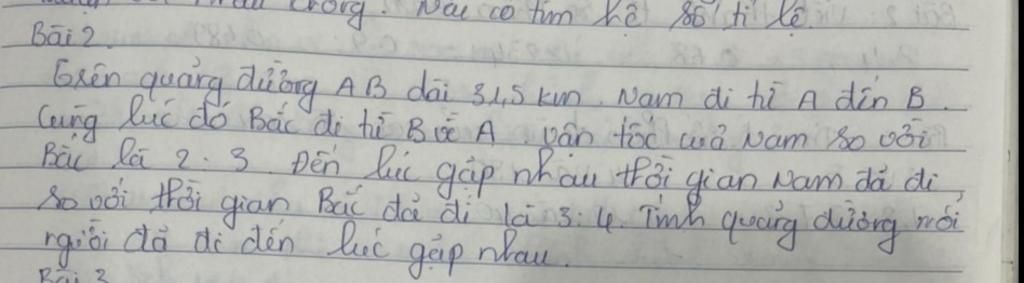 trong. Nếu có tìm hệ số tỉ lệ.
Bài 2.
Trên quảng đường AB dài 31,5 km. Nam đi từ A đến B.
Cùng lúc đó Bắc đi từ B về A. vận tốc của Nam so với
Bắc là 2. 3. Đến lúc gặp nhau thời gian Nam đã đi
so với thời gian Bắc đã đi là 3: 4. Tính quảng đường mỗi
người đã đi đến lúc gặp nhau.
Bài 3